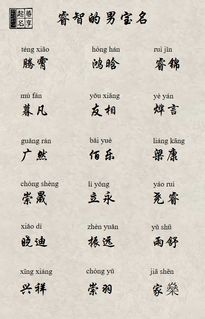 善亨
起名
睿智的男宝名
téng xiāo hóng hán ruì jǐn
腾霄 鸿晗 睿锦
mù fán yǒu xiāng yè yán
慕凡 友相 烨言
guǎng rán bǎi yuè liáng kāng
广然 佰乐 梁康
chóng shèng lì yǒng yáo ruì
崇晟 立永 尧睿
xiǎo dí zhèn yuǎn yǔ shū
晓迪 振远 雨舒
xīng xiáng chóng yǔ jiā shēn
兴祥 崇羽 家燊